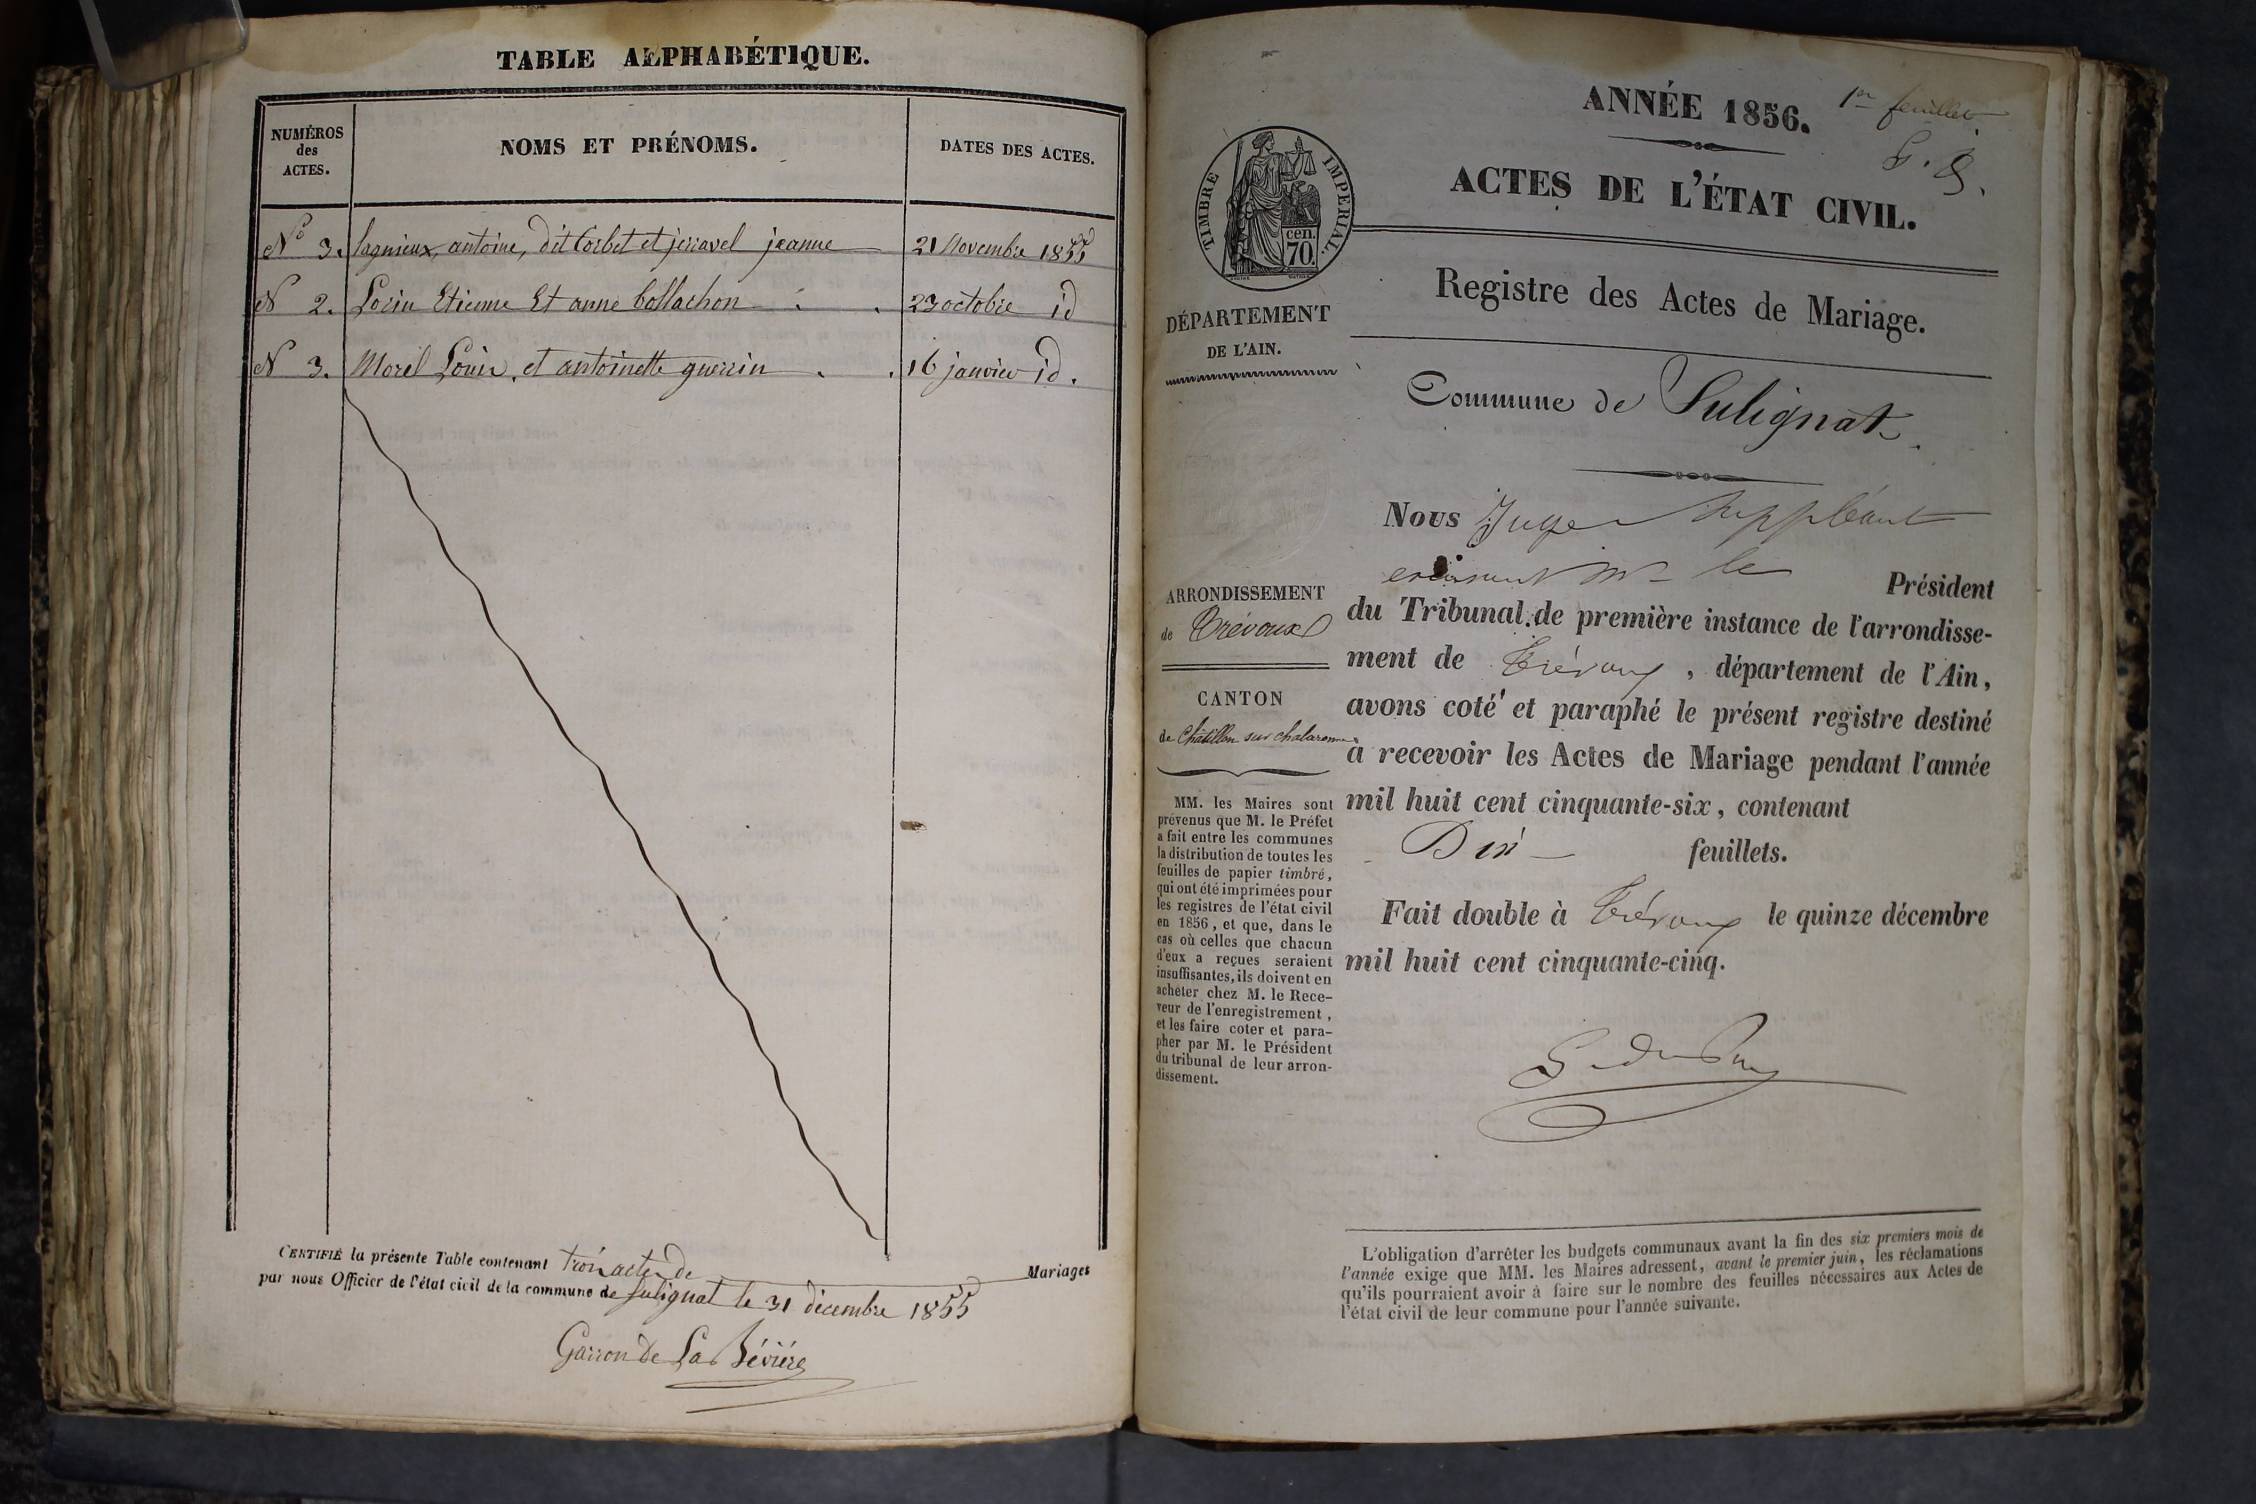 TABLE ALPHABÉTIQUE.
NUMÉROS
des
ACTES.
NOMS ET PRÉNOMS.
DATES DES ACTES.
Nº 3. Lagnieux, antoine, dit Corbet et jeriavel jeanne 21 Novembre 1855
N 2. Lorin Etienne Et anne bollachon 23 octobre id
N 3. Morel Louis, et antoinette guerrin 16 janvier id.
CERTIFIÉ la présente Table contenant trois actes de Mariages
par nous Officier de l'état civil de la commune de Sulignat le 31 décembre 1855
Garron de La Bévière
1er feuillet
ANNÉE 1856.
ACTES DE L'ÉTAT CIVIL.
TIMBRE IMPERIAL.
cen.
70.
Registre des Actes de Mariage.
DÉPARTEMENT
DE L'AIN.
Commune de Sulignat.
Nous Juge Suppléant
Mr le Président
du Tribunal de première instance de l'arrondisse-
ment de Trévoux, département de l'Ain,
avons coté et paraphé le présent registre destiné
à recevoir les Actes de Mariage pendant l'année
mil huit cent cinquante-six, contenant
Dix feuillets.
Fait double à Trévoux le quinze décembre
mil huit cent cinquante-cinq.
ARRONDISSEMENT
de Trévoux
CANTON
de Châtillon sur chalaronne
MM. les Maires sont
prévenus que M. le Préfet
a fait entre les communes
la distribution de toutes les
feuilles de papier timbré,
qui ont été imprimées pour
les registres de l'état civil
en 1856, et que, dans le
cas où celles que chacun
d'eux a reçues seraient
insuffisantes, ils doivent en
acheter chez M. le Rece-
veur de l'enregistrement,
et les faire coter et para-
pher par M. le Président
du tribunal de leur arron-
dissement.
L'obligation d'arrêter les budgets communaux avant la fin des six premiers mois de
l'année exige que MM. les Maires adressent, avant le premier juin, les réclamations
qu'ils pourraient avoir à faire sur le nombre des feuilles nécessaires aux Actes de
l'état civil de leur commune pour l'année suivante.